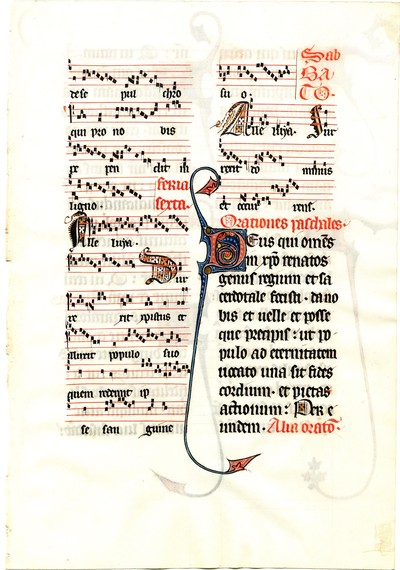 dese pul chro
qui pro no bis
pe pen dit in
ligno feria
sexta.
Alle luya. S ur
re xit xpistus et
illuxit populo suo
quem redemit ip
se san guine
su o. Sab
BA
TO.
Alle luya. Sur
rexit do minus
et occur rens.
Orationes paschales.
Deus qui omnes
in xpo renatos
genus regium et sa
cerdotale fecisti. da no
bis et uelle et posse
que precipis: ut po
pulo ad eternitatem
uocato una sit fides
cordium. et pietas
actionum: Per e
undem. Alia orato.